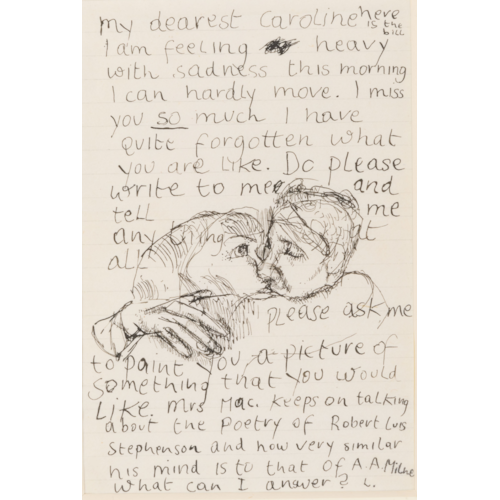 my dearest Caroline here is the bill
I am feeling heavy
with sadness this morning
I can hardly move. I miss
you so much I have
quite forgotten what
you are like. Do please
write to me and
tell me
any thing at
all
please ask me
to paint you a picture of
something that you would
like. Mrs Mac. keeps on talking
about the Poetry of Robert Luis
Stephenson and how very similar
his mind is to that of A.A. Milne
what can I answer? L.